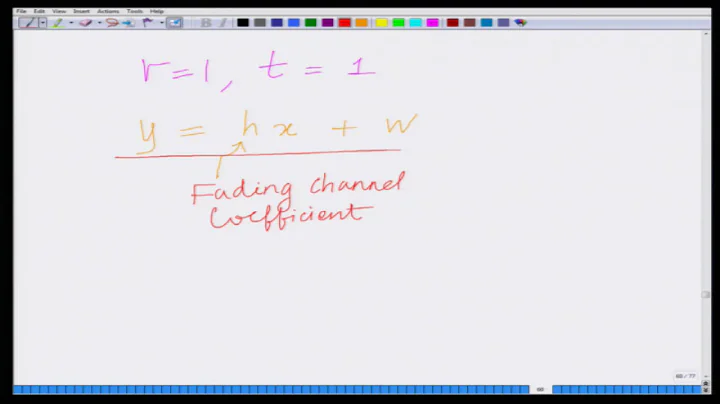 File Edit View Insert Actions Tools Help
r=1, t = 1
y = hx + w
Fading Channel
Coefficient